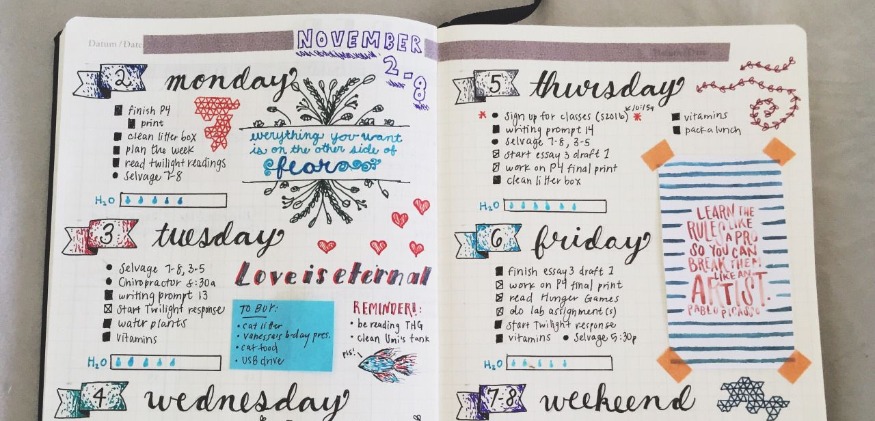 Datum / Date
NOVEMBER
2-8
2 monday
finish P4
print
clean litter box
plan the week
read twilight readings
selvage 7-8
H₂O
everything you want
is on the other side of
fear
3 tuesday
Selvage 7-8, 3-5
Chiropractor 8:30a
writing prompt 13
Start Twilight response
water plants
vitamins
H₂O
Love is eternal
TO BUY:
• cat litter
• Vanessa's b-day pres.
• cat food
• USB drive
REMINDER!:
• be reading THG
• clean Uni's tank
pls!
4 wednesday
5 thursday
sign up for classes (S2016) 10:15a
writing prompt 14
Selvage 7-8, 3-5
start essay 3 draft 1
work on P4 final print
clean litter box
vitamins
pack a lunch
H₂O
6 friday
finish essay 3 draft 1
work on P4 final print
read Hunger Games
do lab assignment(s)
start Twilight response
vitamins • Selvage 5:30p
H₂O
LEARN THE
RULES LIKE
A PRO
SO YOU CAN
BREAK THEM
LIKE AN
ARTIST.
PABLO PICASSO
7-8 weekend